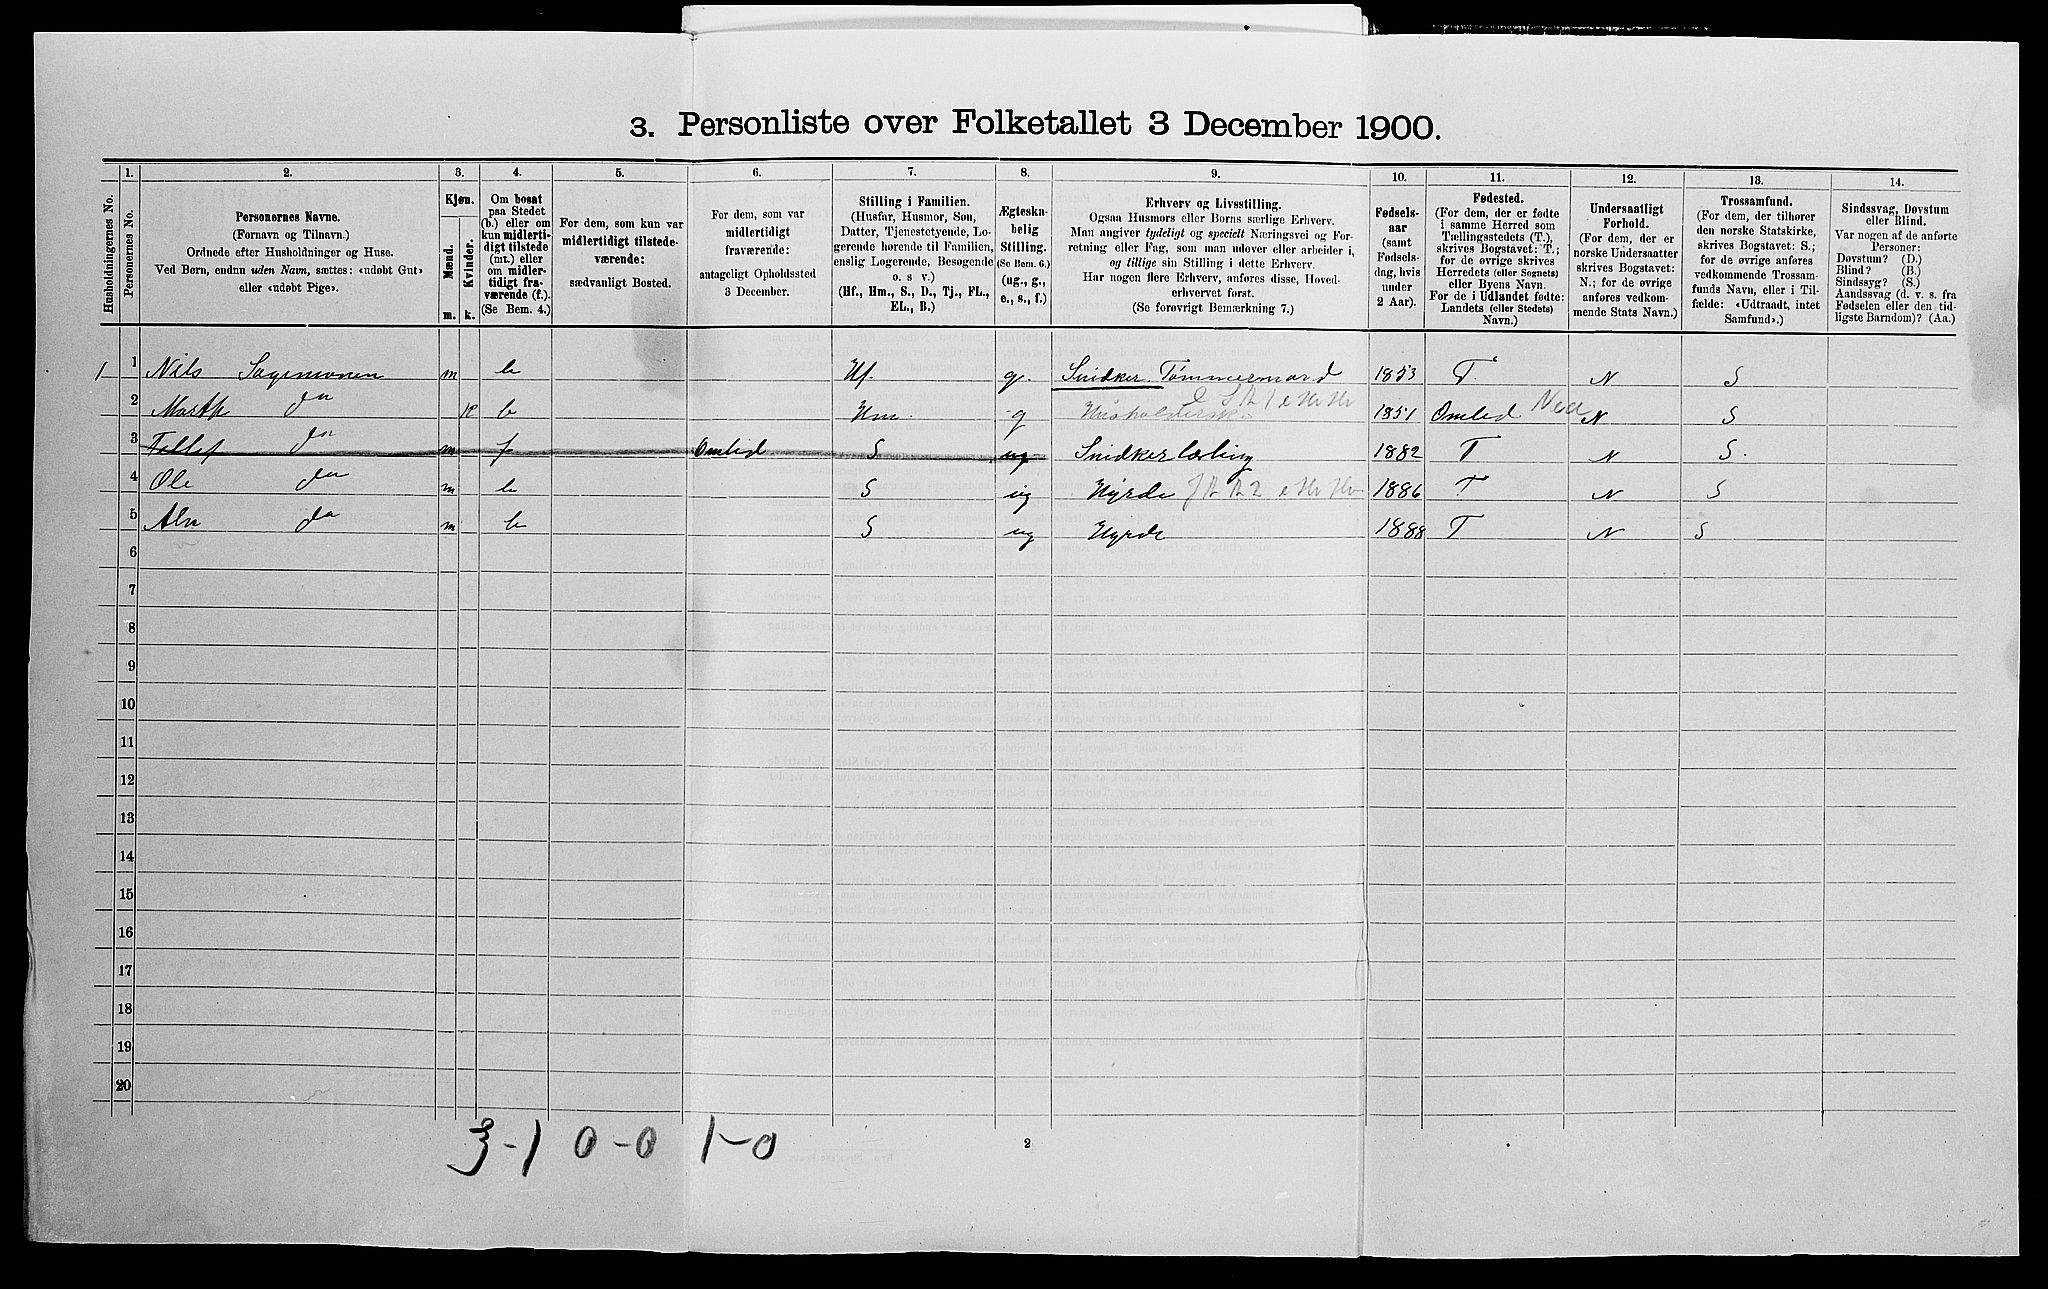 3. Personliste over Folketallet 3 December 1900.
1. 2. 3. 4. 5. 6. 7. 8. 9. 10. 11. 12. 13. 14.
Husholdningernes No.
Personernes No.
Personernes Navne.
(Fornavn og Tilnavn.)
Ordnede efter Husholdninger og Huse.
Ved Børn, endnu uden Navn, sættes: «udøbt Gut»
eller «udøbt Pige».
Kjøn.
Mænd.
Kvinder.
m. k.
Om bosat
paa Stedet
(b.) eller om
kun midlerti-
digt tilstede
(mt.) eller
om midler-
tidigt fra-
værende (f.)
(Se Bem. 4.)
For dem, som kun var
midlertidigt tilstede-
værende:
sædvanligt Bosted.
For dem, som var
midlertidigt
fraværende:
antageligt Opholdssted
3 December.
Stilling i Familien.
(Husfar, Husmor, Søn,
Datter, Tjenestetyende, Lo-
gerende hørende til Familien,
enslig Logerende, Besøgende
o. s v.)
(Hf., Hm., S., D., Tj., FL.,
EL., B.)
Ægteska-
belig
Stilling.
(Se Bem. 6.)
(ug., g.,
e., s., f.)
Erhverv og Livsstilling.
Ogsaa Husmors eller Børns særlige Erhverv.
Man angiver tydeligt og specielt Næringsvei og For-
retning eller Fag, som man udover eller arbeider i,
og tillige sin Stilling i dette Erhverv.
Har nogen flere Erhverv, anføres disse, Hoved-
erhvervet først.
(Se forøvrigt Bemærkning 7.)
Fødsels-
aar
(samt
Fødsels-
dag, hvis
under
2 Aar).
Fødested.
(For dem, der er fødte
i samme Herred som
Tællingsstedets (T.),
skrives Bogstavet: T.;
for de øvrige skrives
Herredets (eller Sognets)
eller Byens Navn.
For de i Udlandet fødte:
Landets (eller Stedets)
Navn.)
Undersaatligt
Forhold.
(For dem, der er
norske Undersaatter
skrives Bogstavet:
N.; for de øvrige
anføres vedkom-
mende Stats Navn.)
Trossamfund.
(For dem, der tilhører
den norske Statskirke,
skrives Bogstavet: S.;
for de øvrige anføres
vedkommende Trossam-
funds Navn, eller i Til-
fælde: «Udtraadt, intet
Samfund».)
Sindssvag, Døvstum
eller Blind.
Var nogen af de anførte
Personer:
Døvstum? (D.)
Blind? (B.)
Sindssyg? (S.)
Aandssvag (d. v. s. fra
Fødselen eller den tid-
ligste Barndom)? (Aa.)
1 1 Nils m b Hf. g. Snidker Tømmermand 1853 T. N S
2 do k b Hm. g 1851 Omlid N S
3 Tellef do m f Omlid S ug Snidkerlærling 1882 T N S.
4 Ole do m b S ug Hyrde 1886 T N S
5 do m b S ug Hyrde 1888 T N S
6
7
8
9
10
11
12
13
14
15
16
17
18
19
20
3-1 0-0 1-0
2